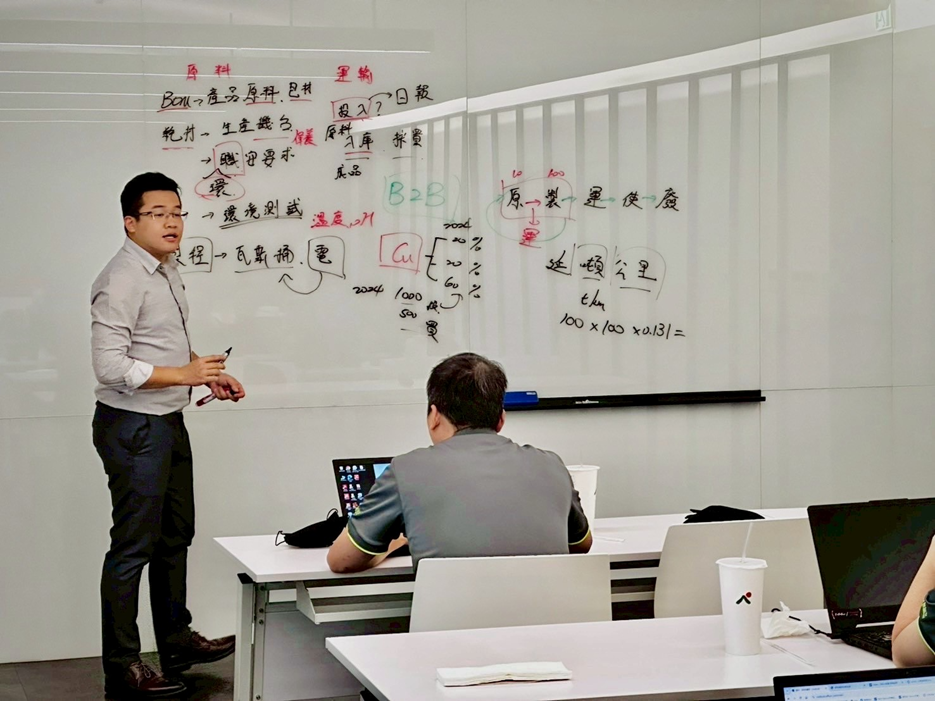 原料
Bom→產品原料.包材
→生產機台.
→職守要求
環
→環境測試 溫度.
程→瓦斯桶.電
運輸
投入?→日報
原料
入庫.採買
成品
B2B
Cu
2024
20%
20%
60%
2024 1000
500 買
10 100
原→製→運→使→廢
運
延噸公里
t/km
100×100×0.131=